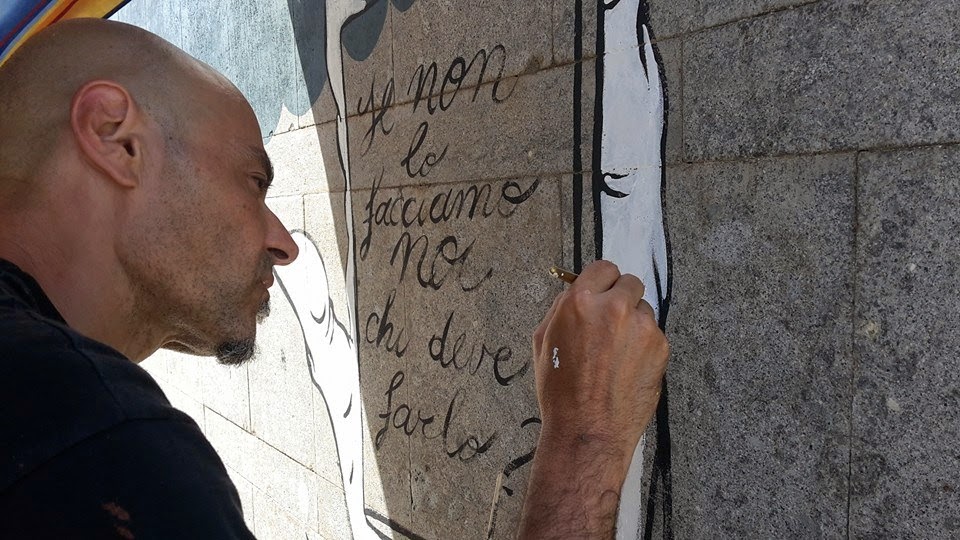 se non
lo
facciamo
noi
chi deve
farlo ?